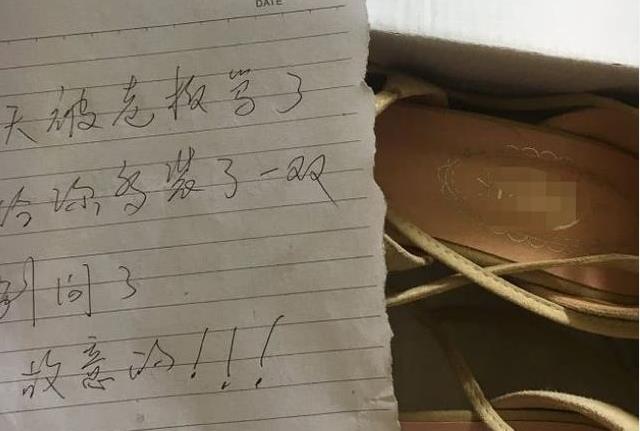 DATE
天被老板骂了
给你多装了一双
别问了
故意的!!!